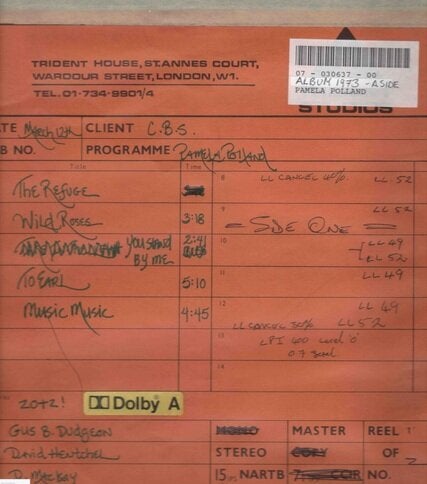 TRIDENT HOUSE, ST. ANNES COURT,
WARDOUR STREET, LONDON, W1.
TEL. 01-734-9901/4
07 - 030637 - 00
ALBUM 1973 - A SIDE
PAMELA POLLAND
STUDIOS
ATE March 12th CLIENT C.B.S.
B NO. PROGRAMME PAMELA POLLAND
Title Time
The Refuge
8 LL CANCEL 40% LL 52
Wild Roses 3:18
9 LL 52
= SIDE ONE =
YOU STAND BY ME 2:41
10 LL 49
LL 52
To EARL 5:10
11 LL 49
Music Music 4:45
12 LL 49
LL CANCEL 30% LL 52
13 LPI 400
14
20+2!
Dolby A
GUS B. DUDGEON
MONO MASTER REEL 1
David Hentschel
STEREO COPY OF 2
D. MacKay
15 IPS NARTB 7 CCIR NO.